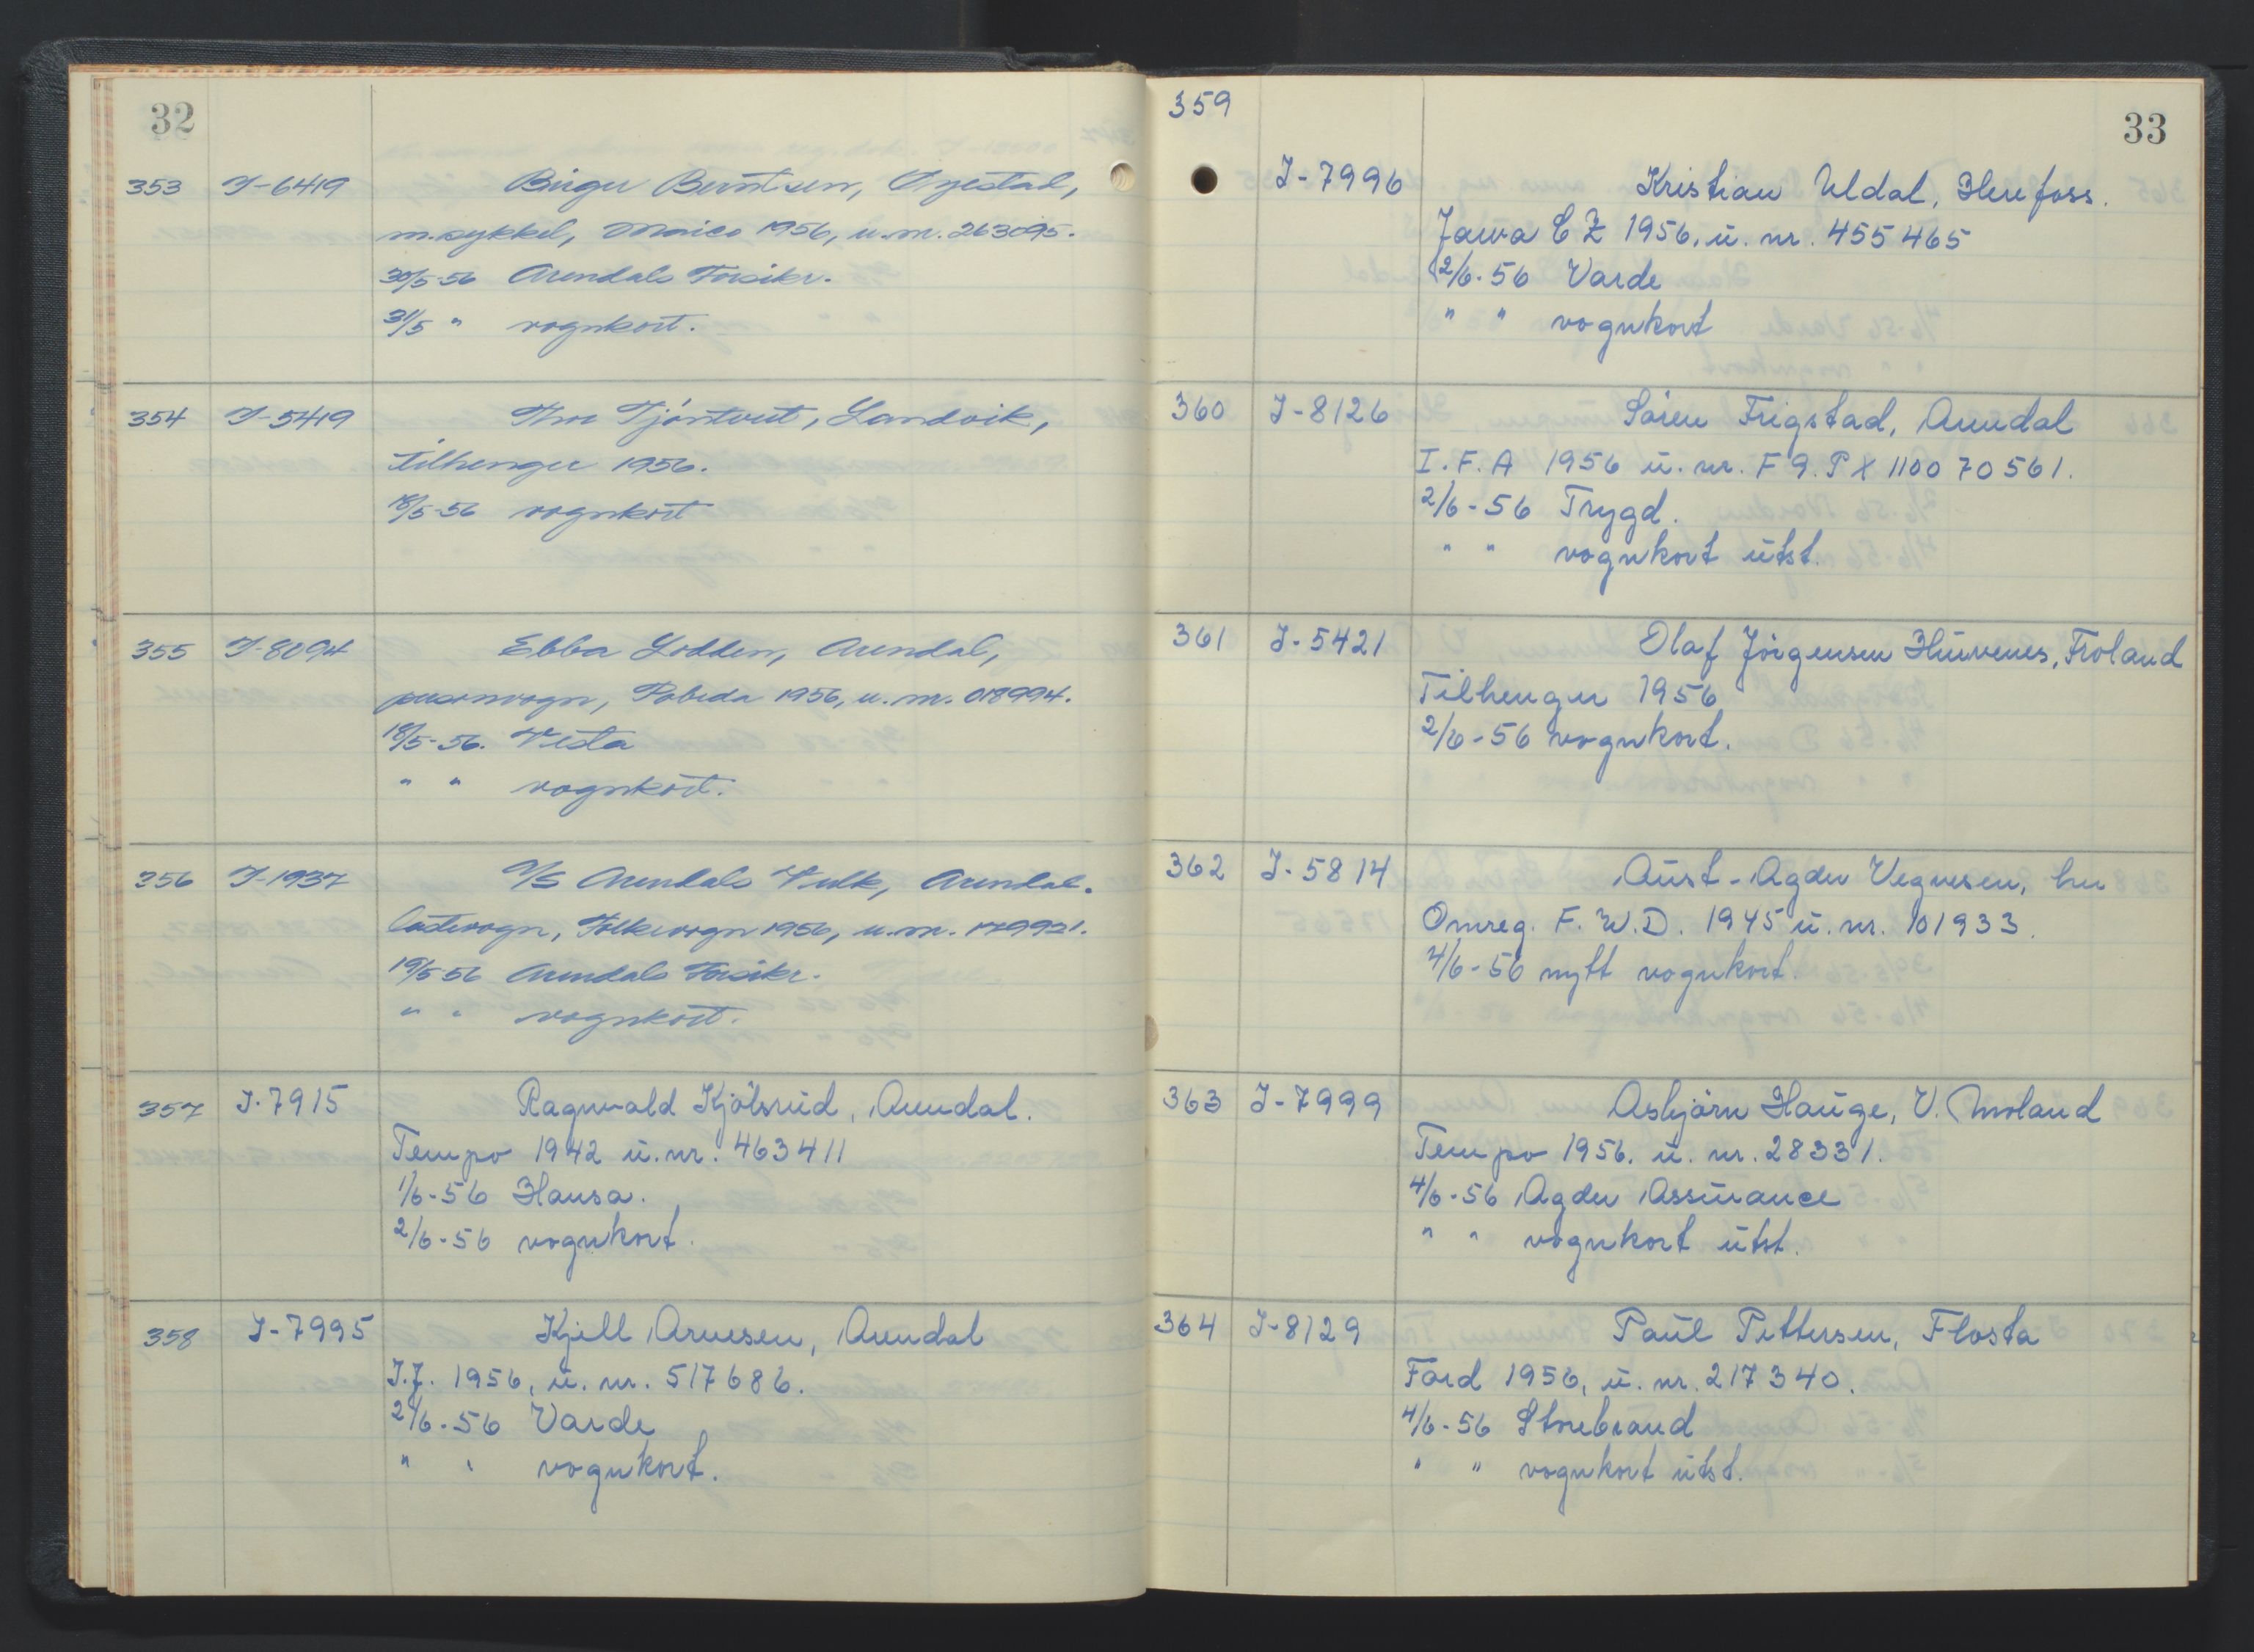 32
353 I-6419 Birger Berntsen, Øyestad,
m.sykkel, Maico 1956, u.m. 263095.
30/5-56 Arendals Forsikr.
31/5 " vognkort.
354 I-5419 Thor Tjöntveit, Landvik,
tilhenger 1956.
18/5-56 vognkort
355 I-8094 Ebba Lodden, Arendal,
personvogn, Pobeda 1956, u.m. 018994.
18/5-56. Vesta
" " vognkort.
356 I-1937 A/S Arendals Vulk, Arendal.
lastevogn, Folkevogn 1956, u.m. 179921.
19/5 56 Arendals Forsikr.
" " vognkort.
357 I.7915 Ragnvald Kjölsrud, Arendal.
Tempo 1942 u.nr. 463411
1/6-56 Hansa.
2/6-56 vognkort.
358 I-7995 Kjell Arnesen, Arendal
I.F. 1956, u. nr. 517686.
2/6-56 Varde
" " vognkort.
33
359 I-7996 Kristian Uldal, Herefoss.
Jawa CZ 1956, u. nr. 455465
2/6-56 Varde
" " vognkort
360 I-8126 Sören Frigstad, Arendal
I.F.A 1956 u. nr. F9.PX 1100 70561.
2/6-56 Trygd.
" " vognkort utst.
361 I-5421 Olaf Jörgensen Hurvenes, Froland
Tilhenger 1956
2/6-56 vognkort.
362 I-5814 Aust-Agder Vegvesen, her
Omreg. F.W.D. 1945 u. nr. 101933.
4/6-56 nytt vognkort.
363 I-7999 Asbjörn Hauge, V. Moland
Tempo 1956. u. nr. 28331.
4/6-56 Agder Assurance
" " vognkort utst.
364 I-8129 Paul Pettersen, Flosta
Ford 1956, u. nr. 217340.
4/6-56 Storebrand
" " vognkort utst.